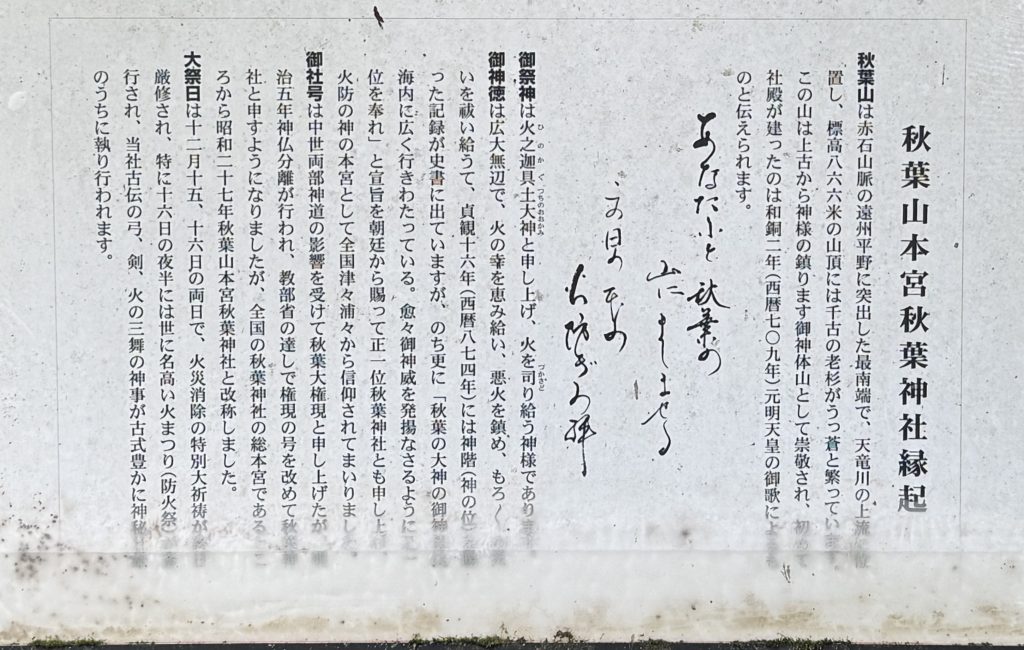 秋葉山本宮秋葉神社縁起
秋葉山は赤石山脈の遠州平野に突出した最南端で、天竜川の上流に位
置し、標高八六六米の山頂には千古の老杉がうっ蒼と繁っています。
この山は上古から神様の鎮ります御神体山として崇敬され、初めて
社殿が建ったのは和銅二年(西暦七〇九年)元明天皇の御歌による
のと伝えられます。
あなたふと秋葉の
山にましませる
この日の本の
火防ぎの神
御祭神は火之迦具土大神と申し上げ、火を司り給う神様であります。
ひのかぐつちのおおかみ
つかさど
御神徳は広大無辺で、火の幸を恵み給い、悪火を鎮め、もろ〱の
いを祓い給うて、貞観十六年(西暦八七四年)には神階(神の位)を
った記録が史書に出ていますが、のち更に「秋葉の大神の御神
海内に広く行きわたっている。愈々御神威を発揚なさるように
位を奉れ」と宣旨を朝廷から賜って正一位秋葉神社とも申し上
火防の神の本宮として全国津々浦々から信仰されてまいりました。
御社号は中世両部神道の影響を受けて秋葉大権現と申し上げたが、明
治五年神仏分離が行われ、教部省の達しで権現の号を改めて秋葉神
社と申すようになりましたが、全国の秋葉神社の総本宮であるこ
ろから昭和二十七年秋葉山本宮秋葉神社と改称しました。
大祭日は十二月十五、十六日の両日で、火災消除の特別大祈祷が
厳修され、特に十六日の夜半には世に名高い火まつり(防火祭)が
行され、当社古伝の弓、剣、火の三舞の神事が古式豊かに神秘
のうちに執り行われます。